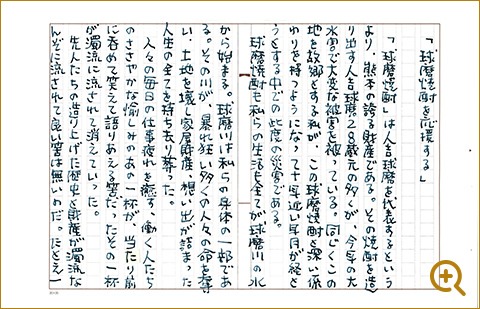 「球磨焼酎を応援する」
「球磨焼酎」は人吉球磨を代表するという
より、熊本の誇る財産である。その焼酎を造
り出す人吉球磨28蔵元の多くが、今年の大
水害で大変な被害を被っている。同じくこの
地を故郷とする私が、この球磨焼酎と深い係
わりを持つようになって十年近い年月が経と
うとする中での此度の災害である。
球磨焼酎も私らの生活も全てが球磨川の水
から始まる。球磨川は私らの身体の一部であ
る。その川が、暴れ狂い多くの人々の命を奪
い、土地を壊し家屋財産、想い出が詰まった
人生の全てを持ち去り葬った。
人々の毎日の仕事疲れを癒す、働く人たち
のささやかな愉しみのあの一杯が、当たり前
に呑めて笑えて語りあえる筈だったその一杯
が濁流に流されて消えていった。
先人たちの造り上げた歴史と財産が濁流な
んぞに流されて良い筈は無いのだ。たとえ一